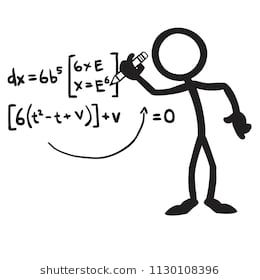 dx=6b⁵[6×E
x=E⁶]
[6(t²-t+v)]+v =0
shutterstock.com • 1130108396